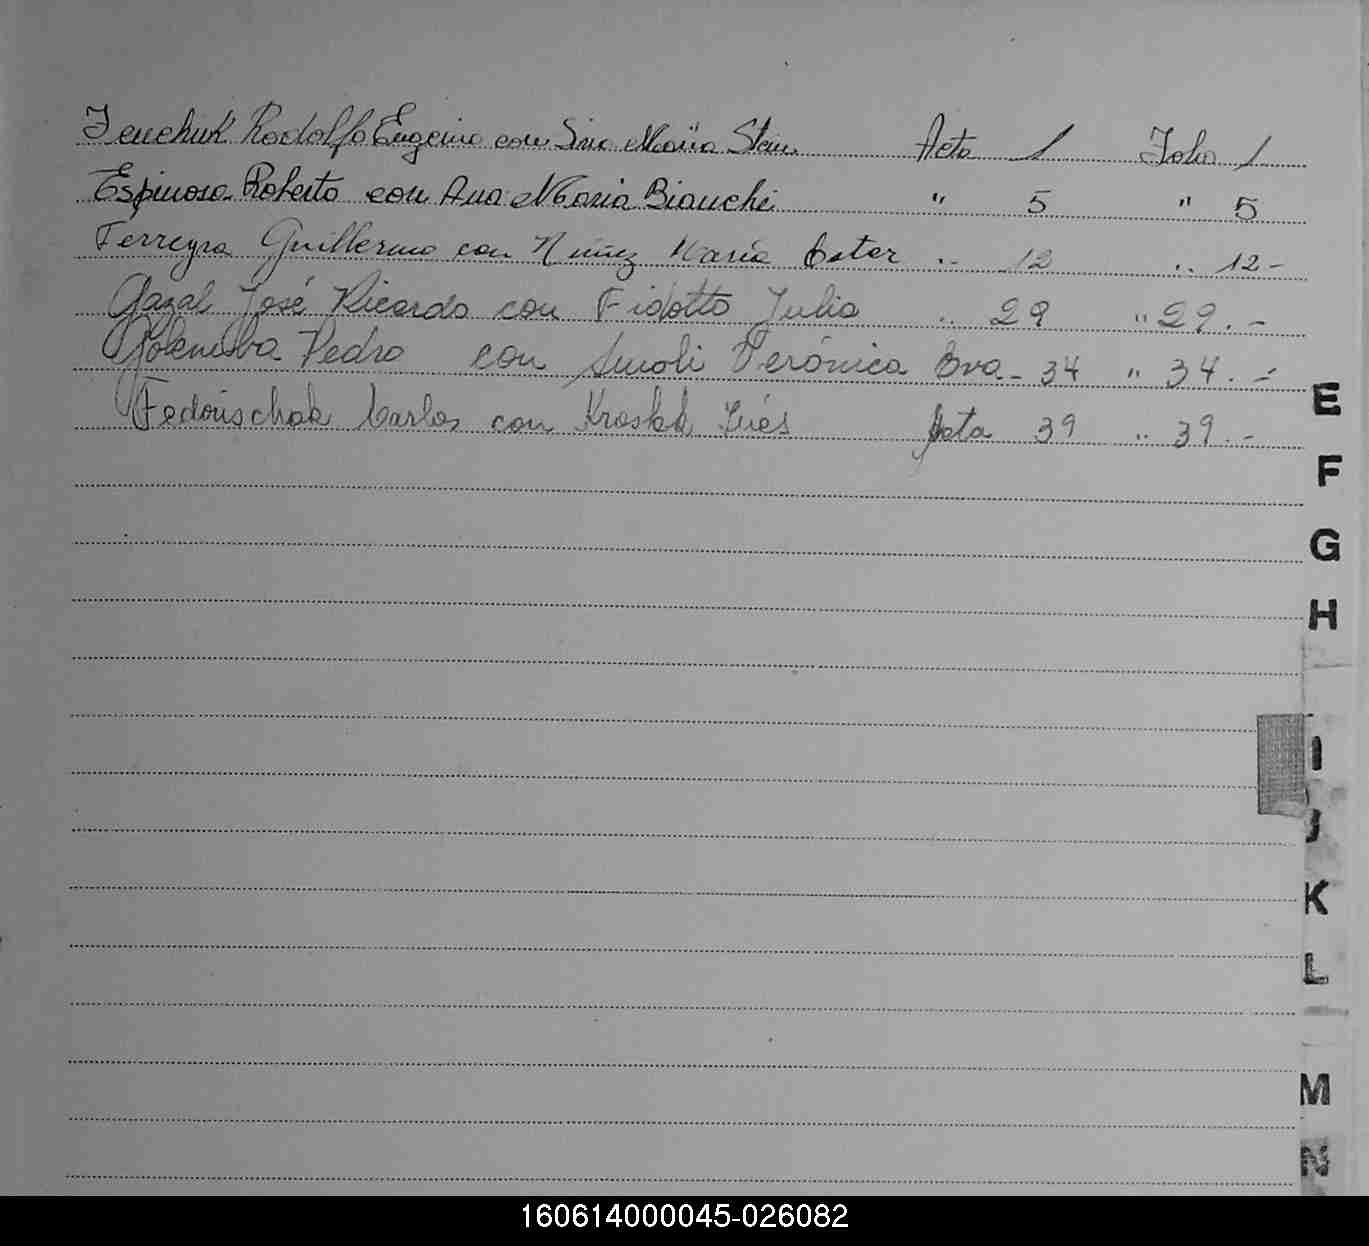 Rodolfo Eugenio con María Acta 1 Folio 1
Espinosa Roberto con Ana María Bianchi " 5 " 5
Ferreyra Guillermo con Núñez María Ester " 12 " 12-
Gazal José Ricardo con Fidotto Julia " 29 " 29.-
Pedro con Verónica Eva - 34 " 34.-
Carlos con Inés Acta 39 " 39.-
E
F
G
H
I
J
K
L
M
N
160614000045-026082